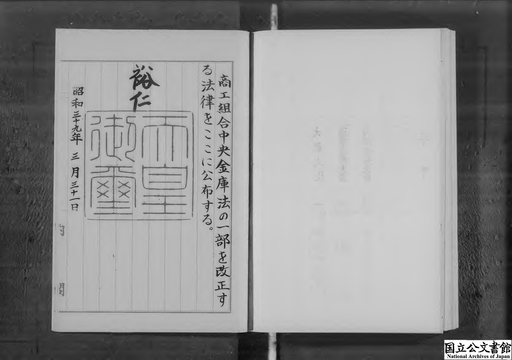 商工組合中央金庫法の一部を改正す
る法律をここに公布する。
裕仁
天皇
御璽
昭和三十九年三月三十一日
国立公文書館
National Archives of Japan